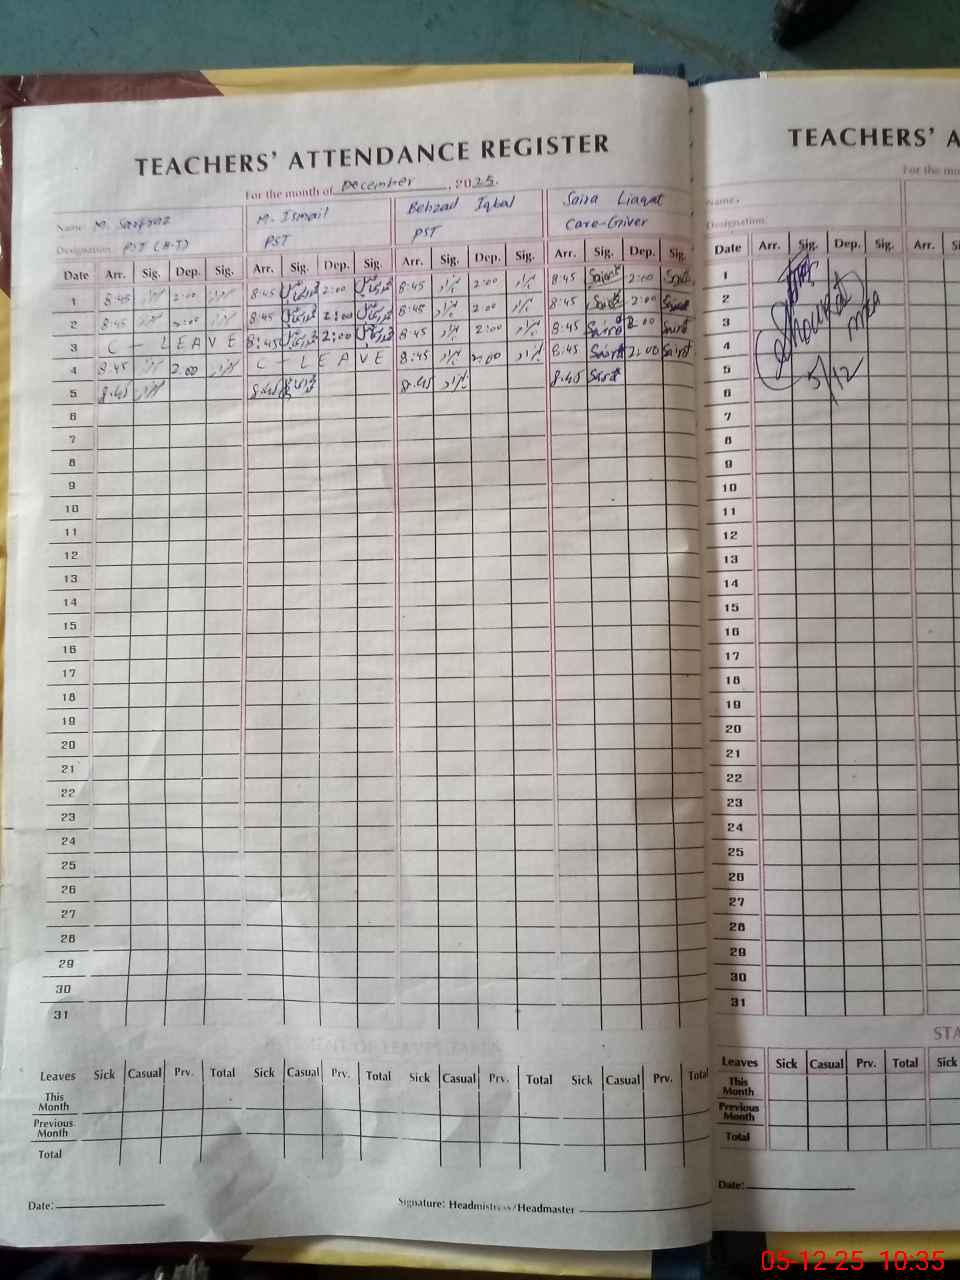 TEACHERS' ATTENDANCE REGISTER
For the month of December, 2025.
Name M. Sarfraz M. Ismail Behzad Iqbal Saira Liaqat
Designation PST (H-T) PST PST Care-Griver
Date Arr. Sig. Dep. Sig. Arr. Sig. Dep. Sig. Arr. Sig. Dep. Sig. Arr. Sig. Dep. Sig.
1 8:45 2:00 8:45 2:00 8:45 2:00 8:45 Saira 2:00 Saira
2 8:45 2:00 8:45 2:00 8:45 2:00 8:45 Saira 2:00 Saira
3 C - L E A V E 8:45 2:00 8:45 2:00 8:45 Saira 2:00 Saira
4 8:45 2:00 C - L E A V E 8:45 2:00 8:45 Saira 2:00 Saira
5 8:45 8:45 8:45 8:45 Saira
6
7
8
9
10
11
12
13
14
15
16
17
18
19
20
21
22
23
24
25
26
27
28
29
30
31
Leaves Sick Casual Prv. Total Sick Casual Prv. Total Sick Casual Prv. Total Sick Casual Prv. Total
This Month
Previous Month
Total
Date: Signature: Headmistress/Headmaster
TEACHERS' A
For the mo
Name
Designation
Date Arr. Sig. Dep. Sig. Arr. Si
1
2
3
4
5
6
Shoukat
MEA
5/12
7
8
9
10
11
12
13
14
15
16
17
18
19
20
21
22
23
24
25
26
27
28
29
30
31
STA
Leaves Sick Casual Prv. Total Sick
This Month
Previous Month
Total
Date:
05-12-25 10:35